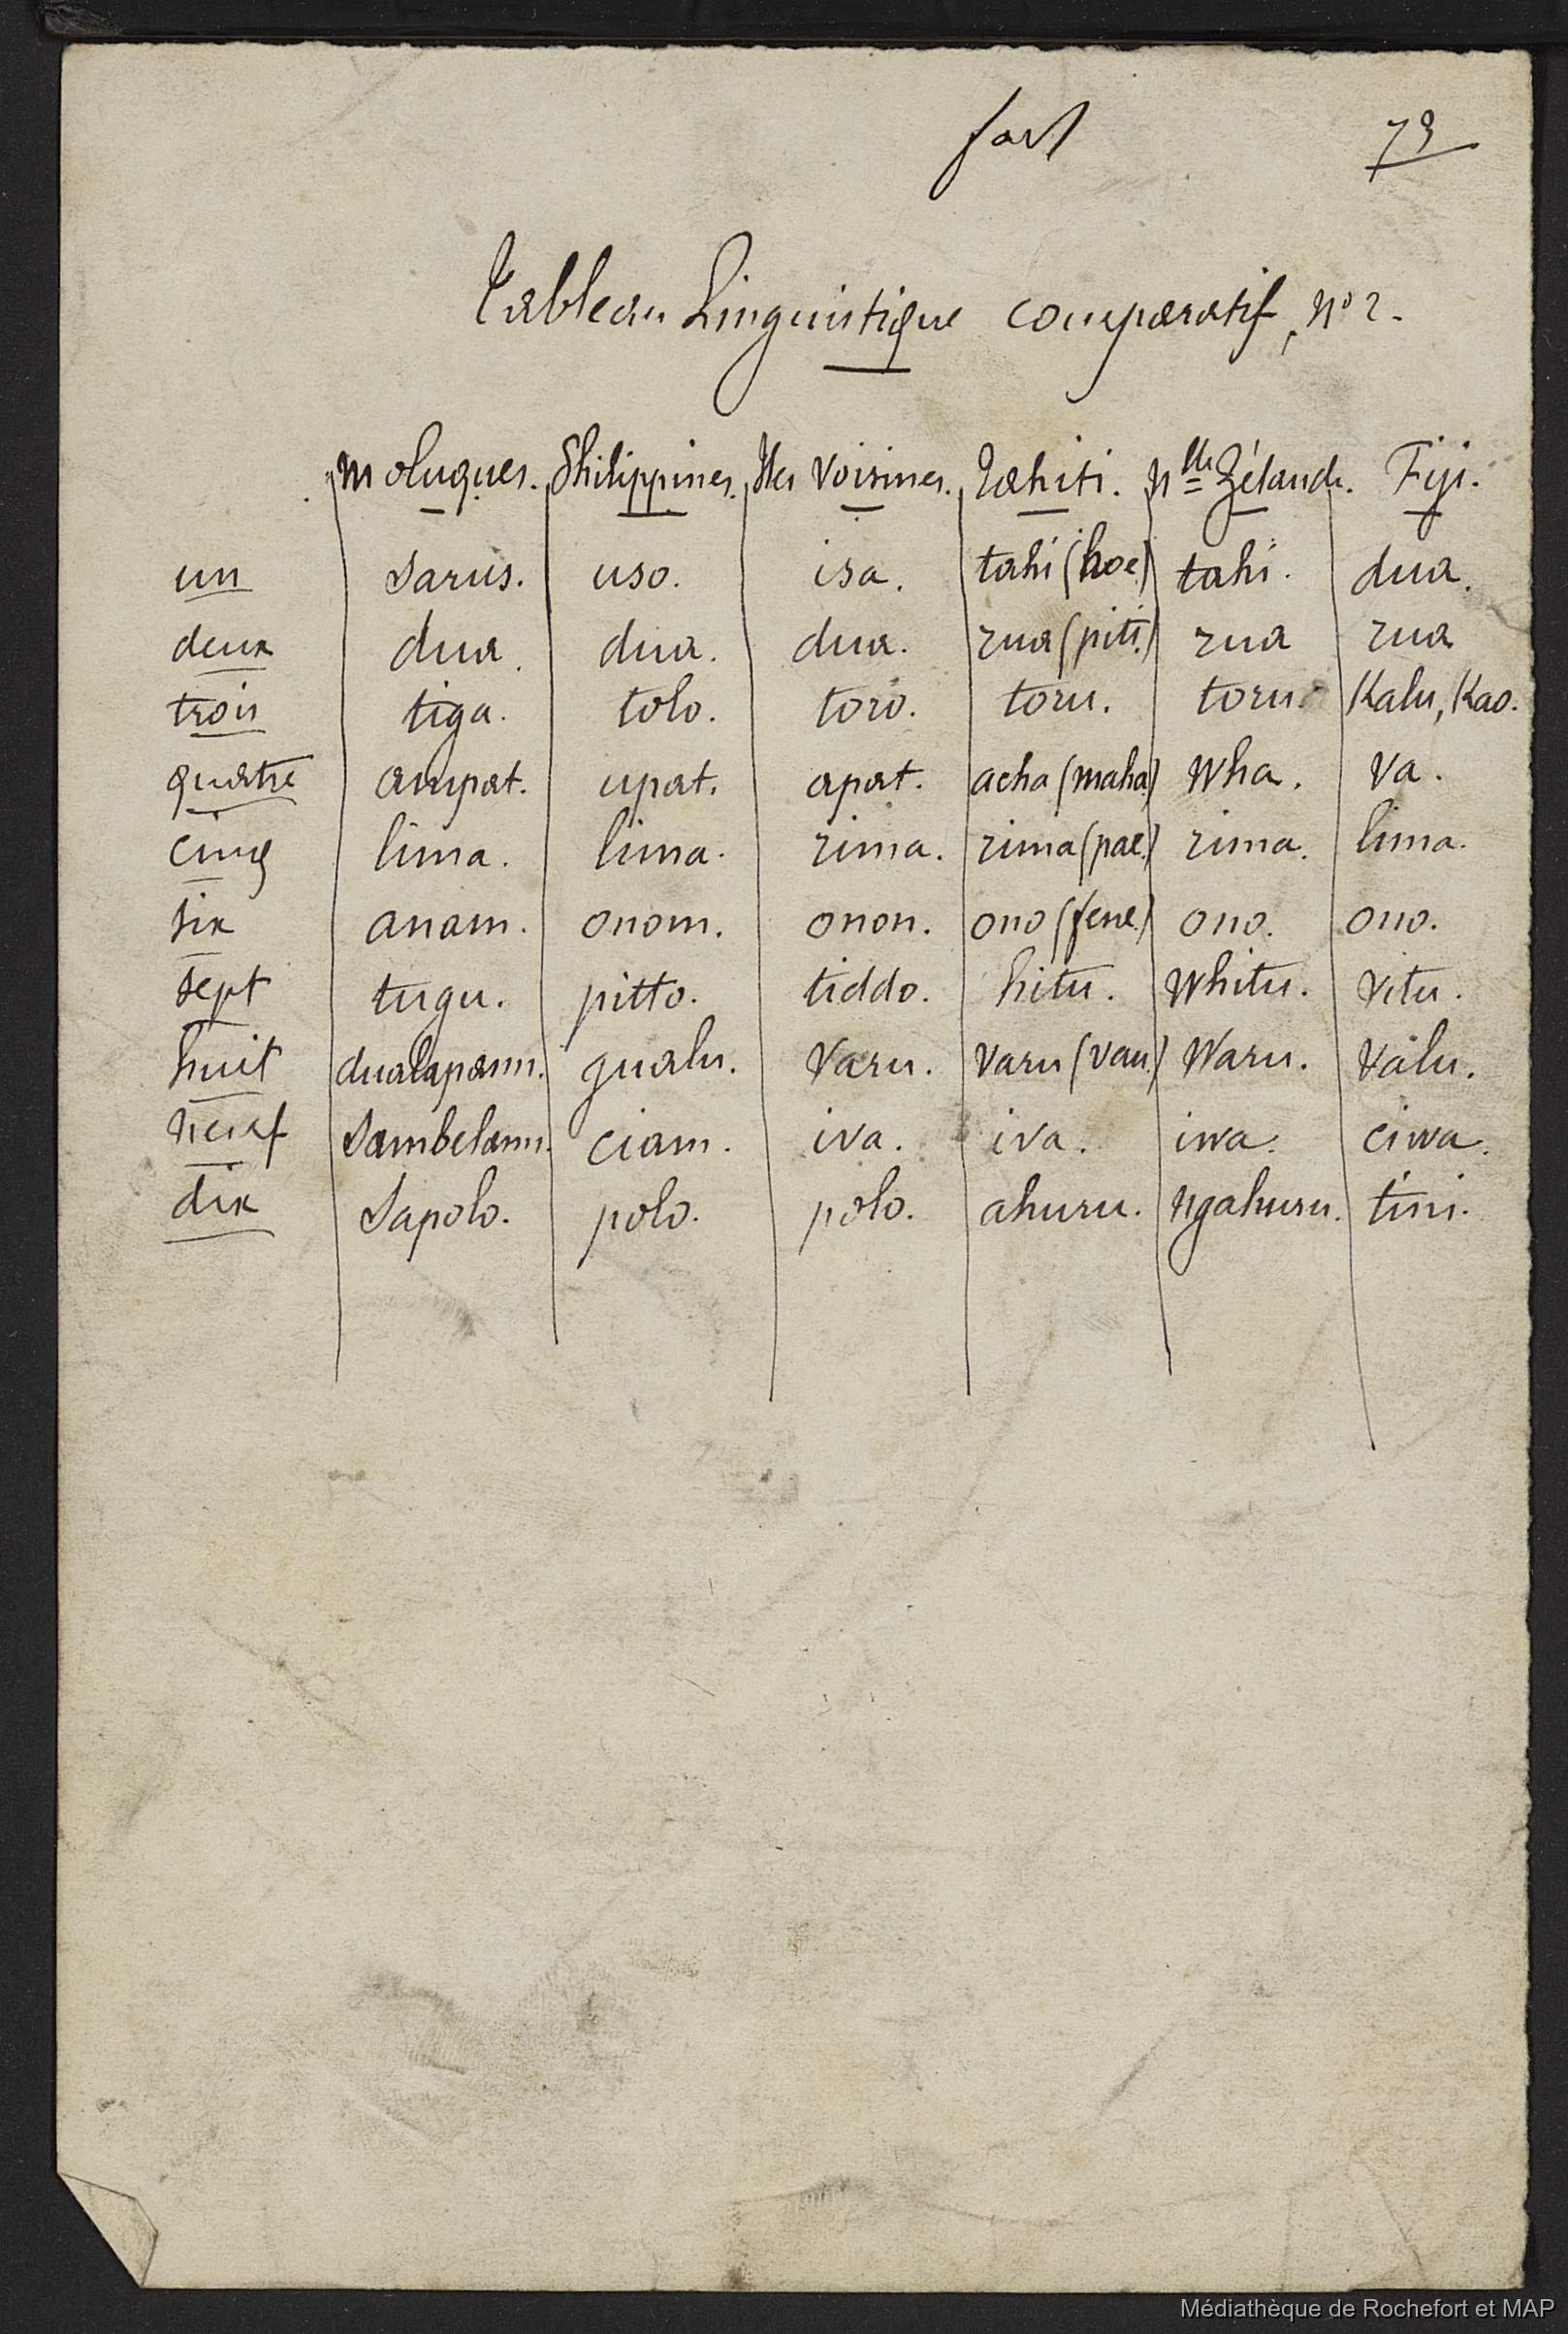 fort 73
Tableau Linguistique comparatif, nº 2.
Moluques. Philippines. Iles Voisines. Tahiti. Nlle Zélande. Fiji.
un sarus. uso. isa. tahi (hoe) tahi. dua.
deux dua. dua. dua. rua (piti.) rua rua
trois tiga. tolo. toro. toru. toru. Kalu, Kao.
quatre ampat. upat. apat. acha (maha) wha. va.
cinq lima. lima. rima. rima (pae.) rima. lima.
six anam. onom. onon. ono (fene.) ono. ono.
sept tugu. pitto. tiddo. hitu. whitu. vitu.
huit dualapann. gualu. varu. varu (vau.) waru. valu.
neuf sambelann. ciam. iva. iva. iwa. ciwa.
dix sapolo. polo. polo. ahuru. ngahuru. tini.
Médiathèque de Rochefort et MAP